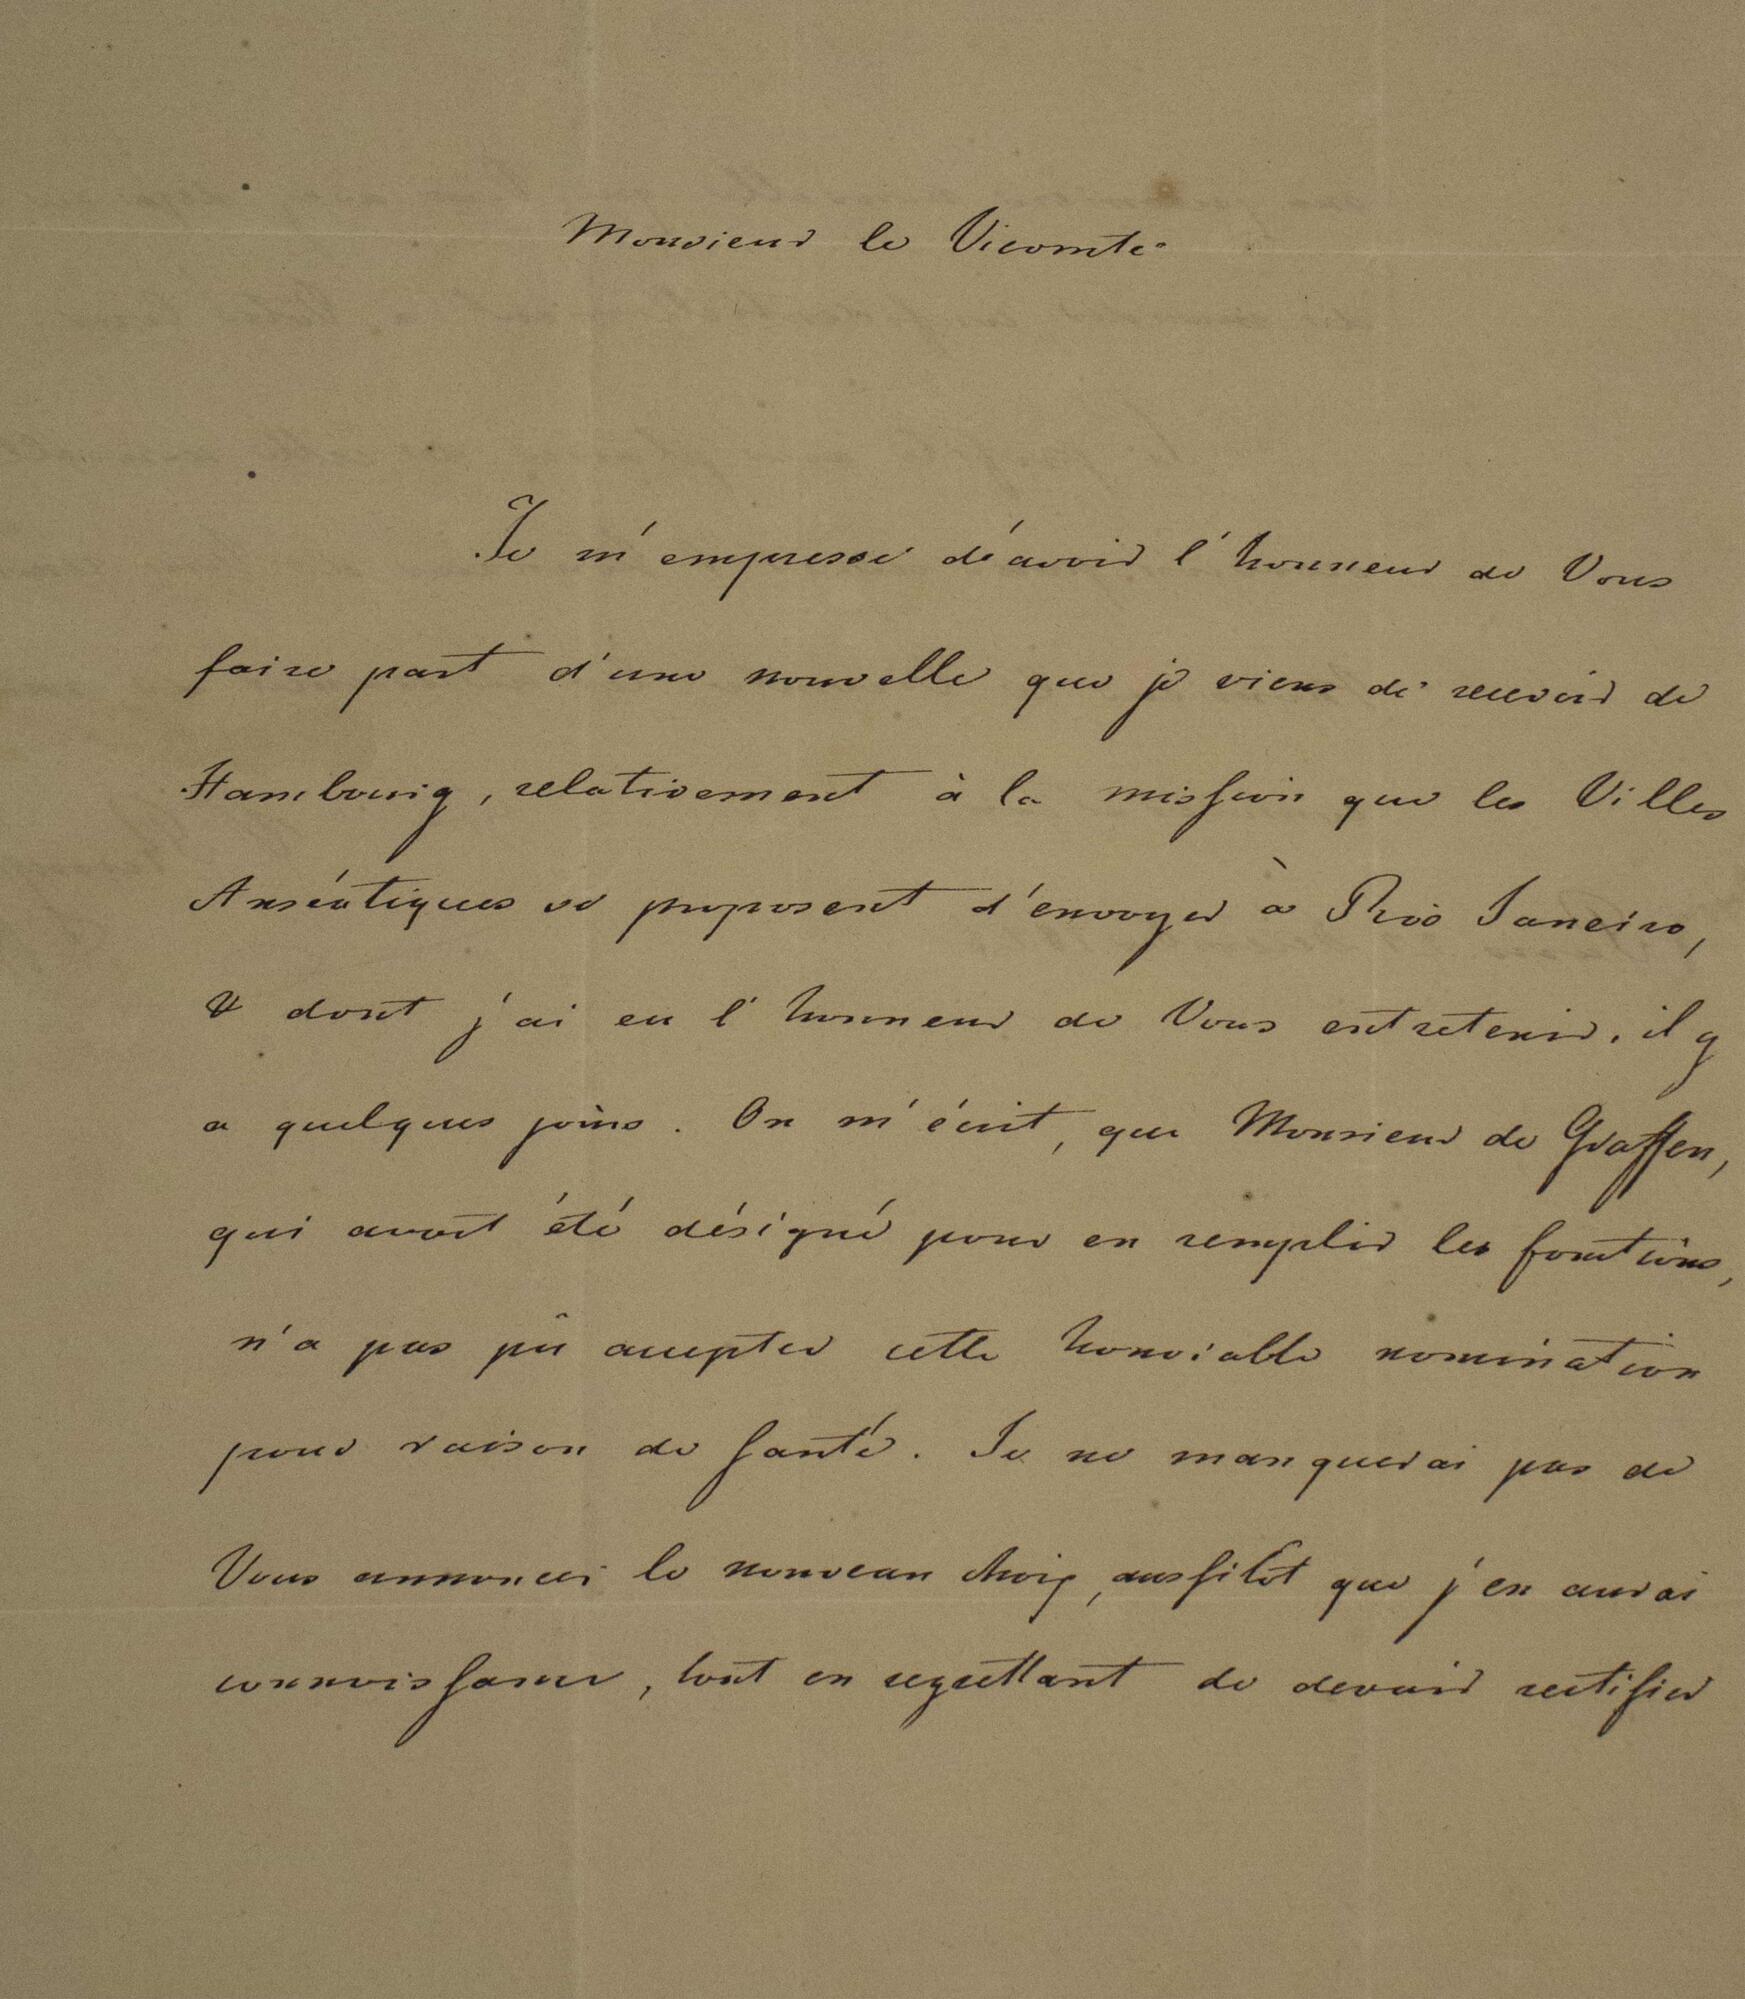 Monsieur le Vicomte
Je m'empresse d'avoir l'honneur de Vous
faire part d'une nouvelle que je viens de recevoir de
Hambourg, relativement à la mission que les Villes
Anséatiques se proposent d'envoyer à Rio Janeiro,
& dont j'ai eu l'honneur de Vous entretenir, il y
a quelques jours. On m'écrit, que Monsieur de Graffen,
qui avoit été désigné pour en remplir les fonctions,
n'a pas pû accepter cette honorable nomination
pour raison de santé. Je ne manquerai pas de
Vous annoncer le nouveau choix, aussitôt que j'en aurai
connoissance, tout en regrettant de devoir rectifier